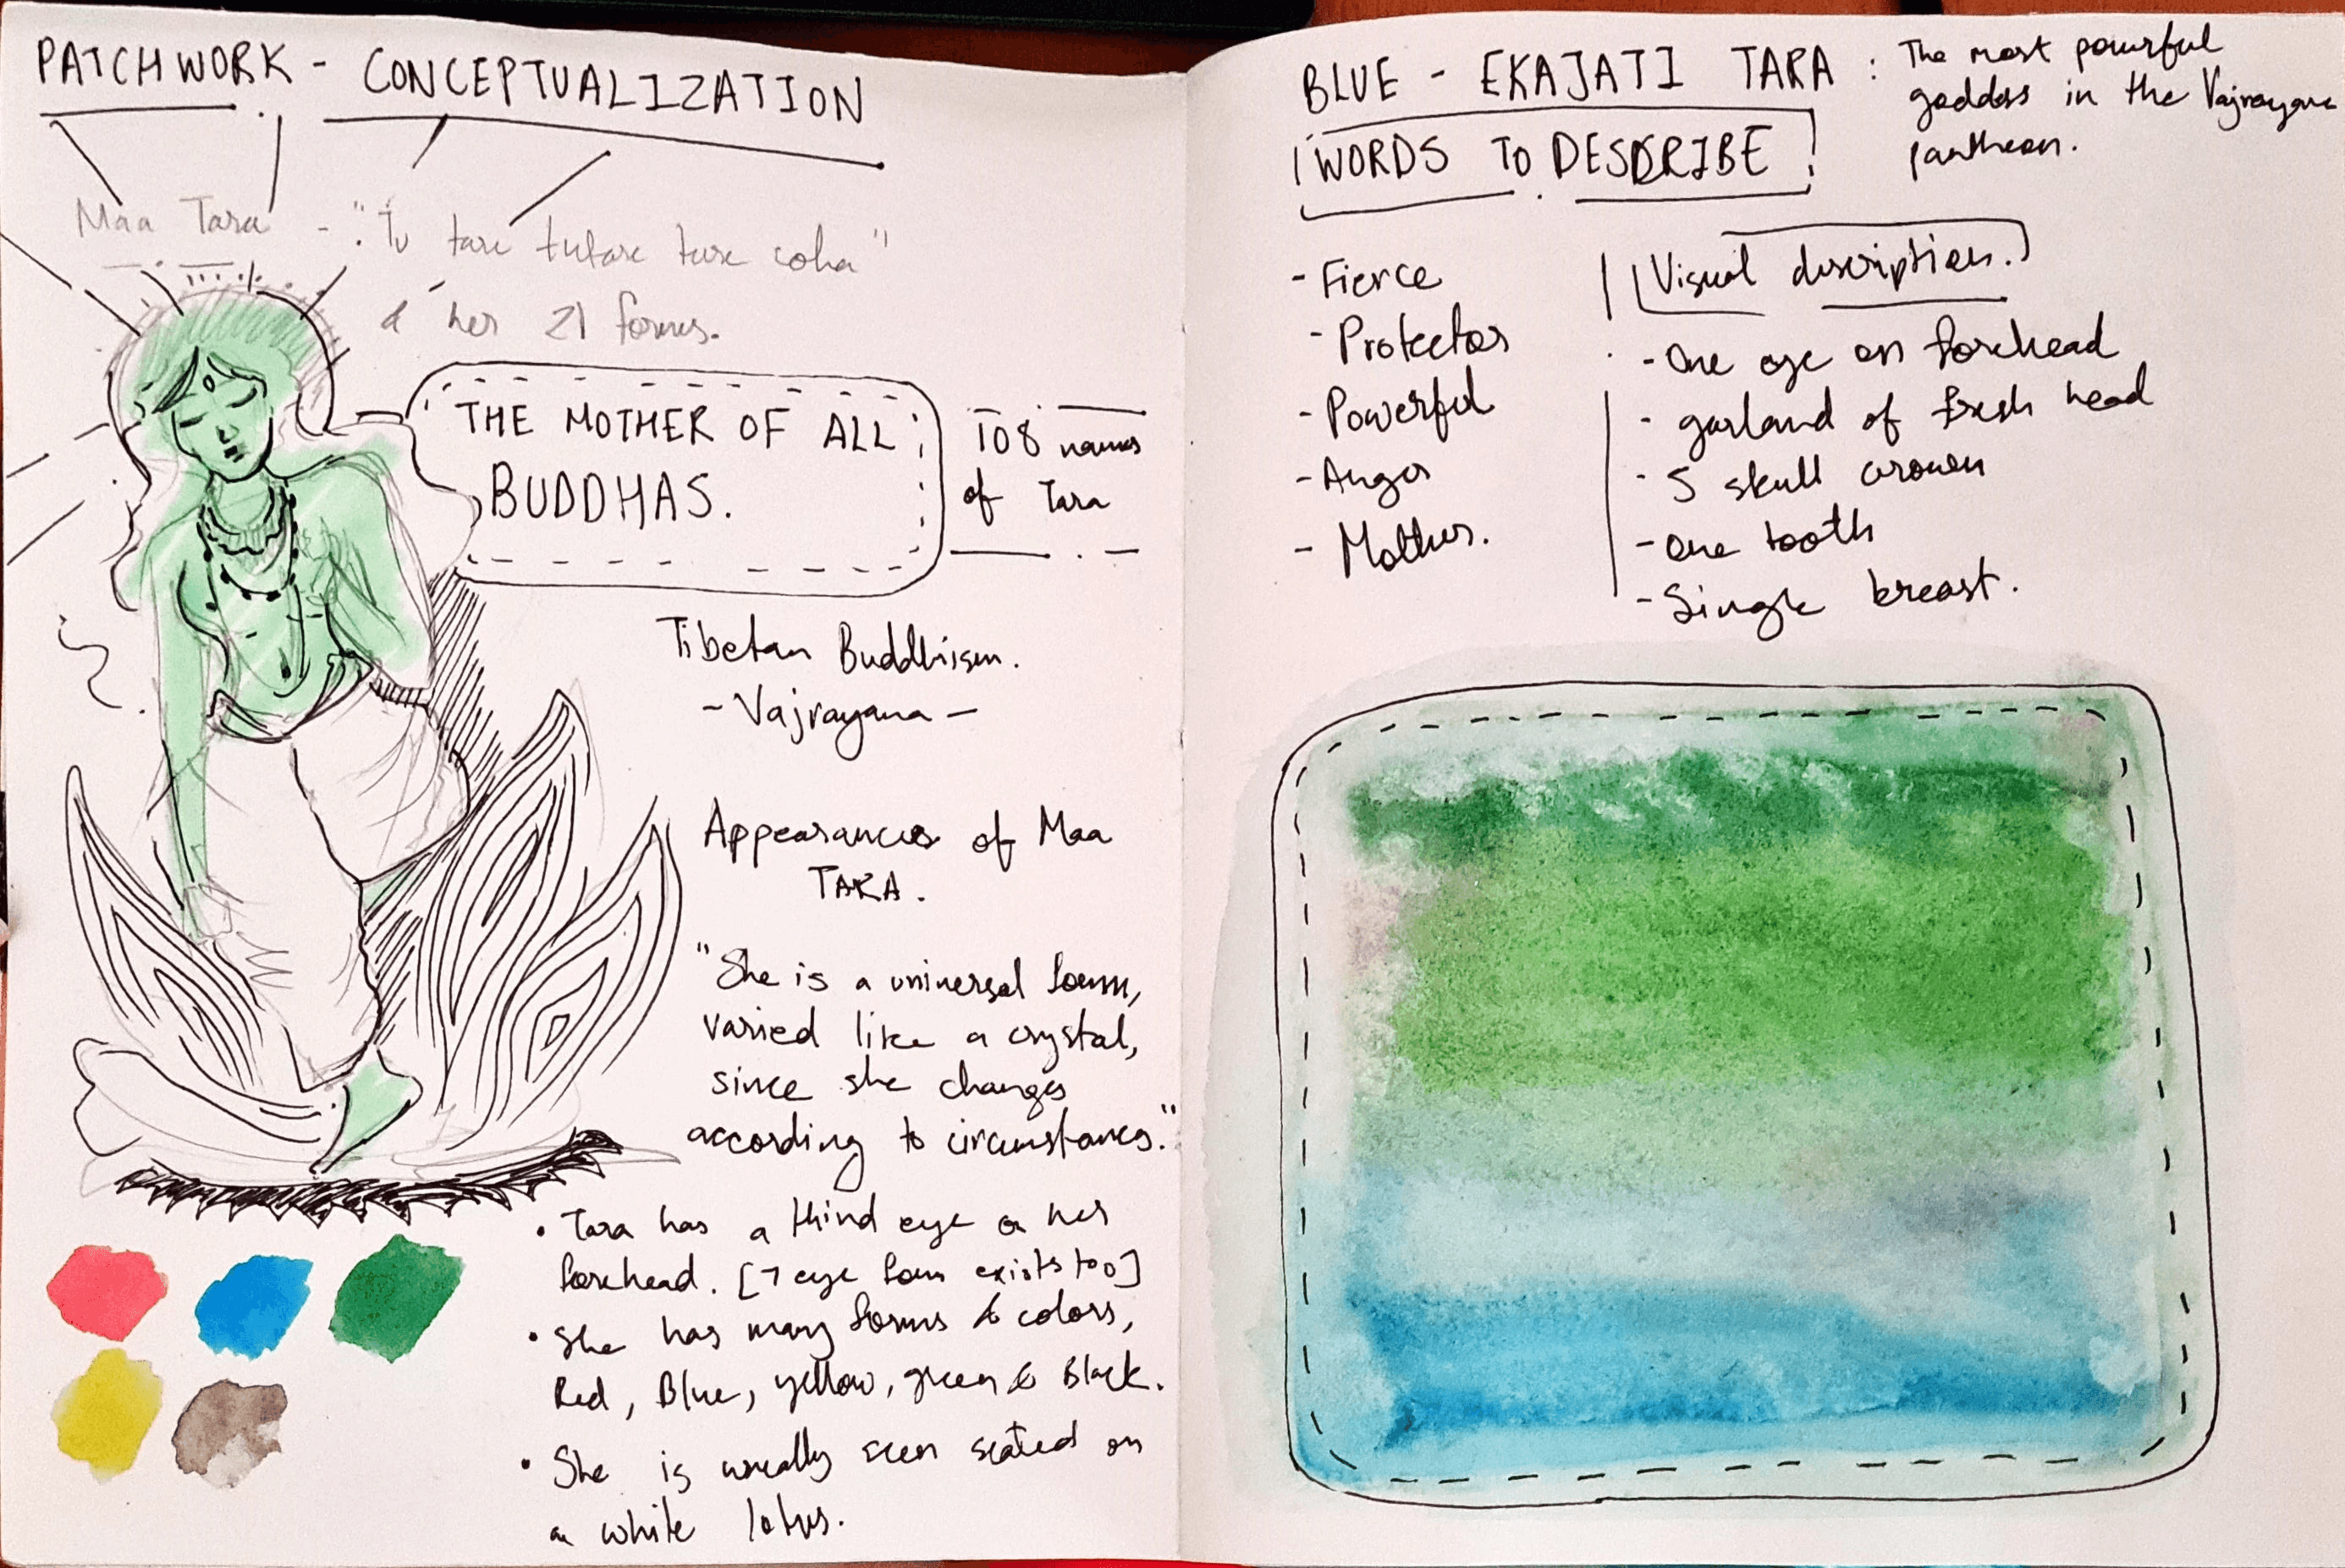 PATCHWORK - CONCEPTUALIZATION
Maa Tara - "Tu tare tutare ture soha"
& her 21 forms.
THE MOTHER OF ALL
BUDDHAS.
108 names
of Tara
Tibetan Buddhism.
- Vajrayana -
Appearances of Maa
TARA.
"She is a universal form,
varied like a crystal,
since she changes
according to circumstances."
• Tara has a third eye on her
forehead. [7 eye form exists too]
• She has many forms & colors,
Red, Blue, yellow, green & Black.
• She is usually seen seated on
a white lotus.
BLUE - EKAJATI TARA : The most powerful
goddess in the Vajrayana
pantheon.
WORDS TO DESCRIBE
- Fierce
- Protector
- Powerful
- Anger
- Mother.
Visual description.
- One eye on forehead
- garland of fresh head
- 5 skull crown
- One tooth
- Single breast.